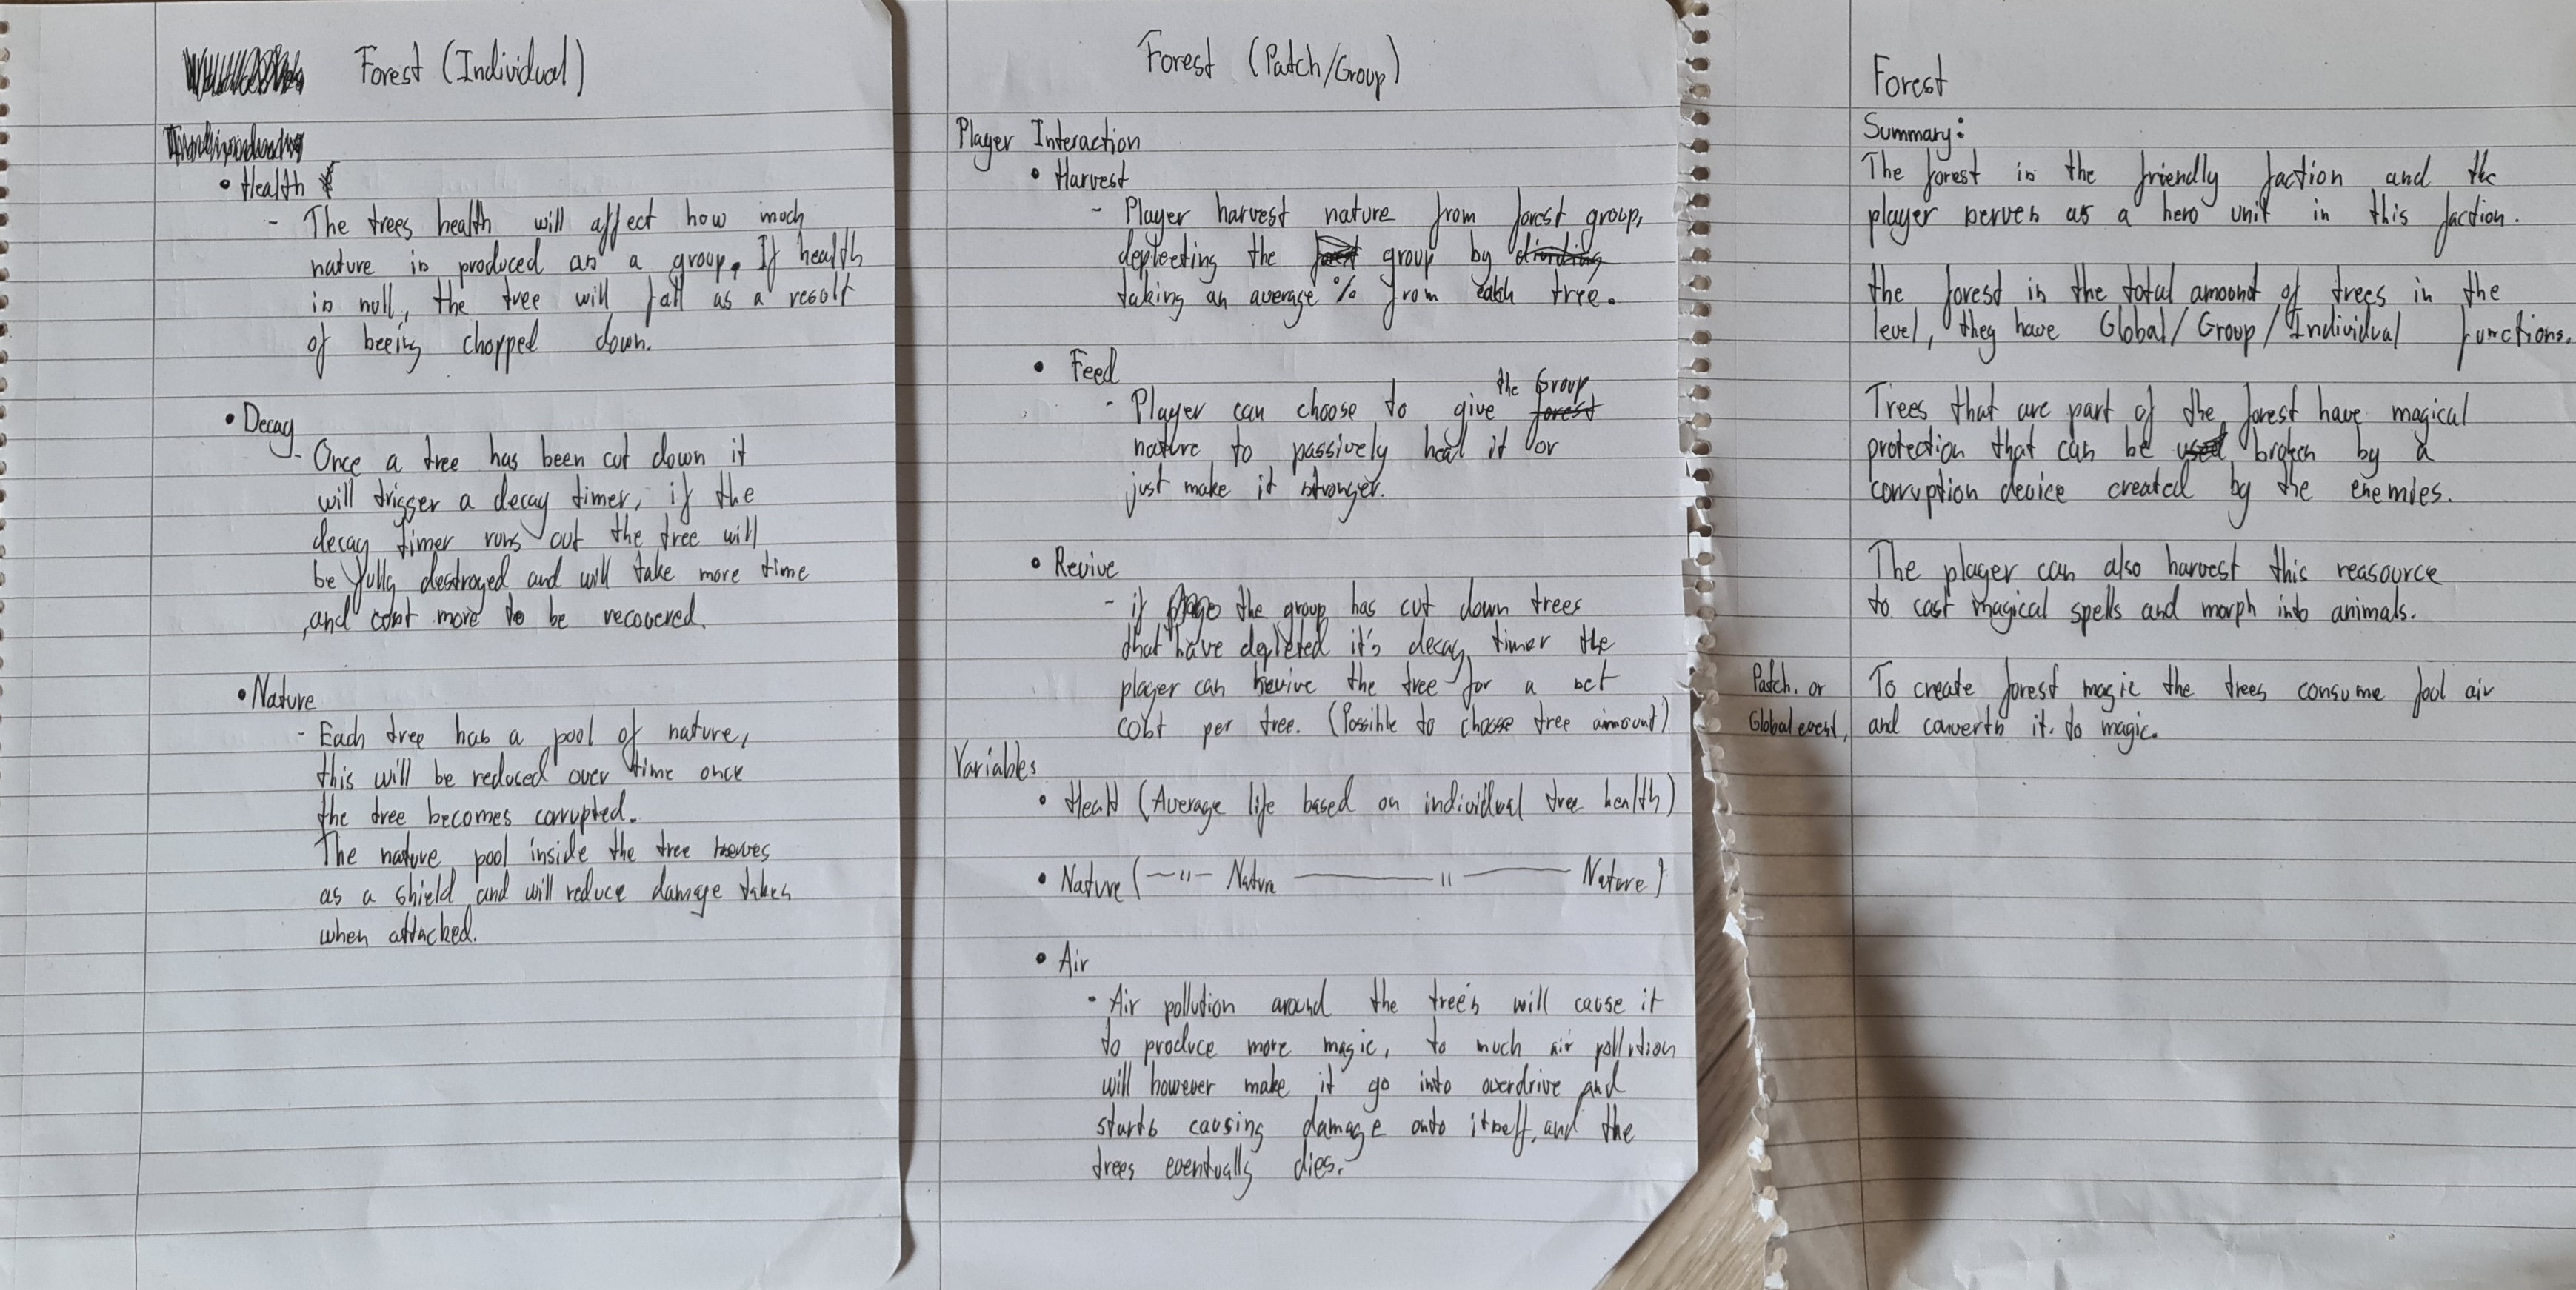 Forest (Individual)
• Health
- The trees health will affect how much
nature is produced as a group. If health
is null, the tree will fall as a result
of beeing chopped down.
• Decay
- Once a tree has been cut down it
will trigger a decay timer, if the
decay timer runs out the tree will
be fully destroyed and will take more time
and cost more to be recovered.
• Nature
- Each tree has a pool of nature,
this will be reduced over time once
the tree becomes corrupted.
The nature pool inside the tree
as a shield and will reduce damage taken
when attacked.
Forest (Patch/Group)
Player Interaction
• Harvest
- Player harvest nature from forest group,
depleeting the group by
taking an average % from each tree.
• Feed
- Player can choose to give the Group
nature to passively heal it or
just make it stronger.
• Revive
- if the group has cut down trees
that have depleted it's decay timer the
player can revive the tree for a set
cost per tree. (Possible to choose tree amount)
Variables
• Healt (Average life based on individual tree health)
• Nature (—"— Nature ———"——— Nature)
• Air
- Air pollution around the tree's will cause it
to produce more magic, to much air pollution
will however make it go into overdrive and
starts causing damage onto itself, and the
trees eventually dies.
Forest
Summary:
The forest is the friendly faction and the
player serves as a hero unit in this faction.
the forest is the total amoond of trees in the
level, they have Global/Group/Individual functions.
Trees that are part of the forest have magical
protection that can be broken by a
corruption device created by the enemies.
The player can also harvest this reasource
to cast magical spells and morph into animals.
Patch. or To create forest magic the trees consume fool air
Global event, and converts it. to magic.